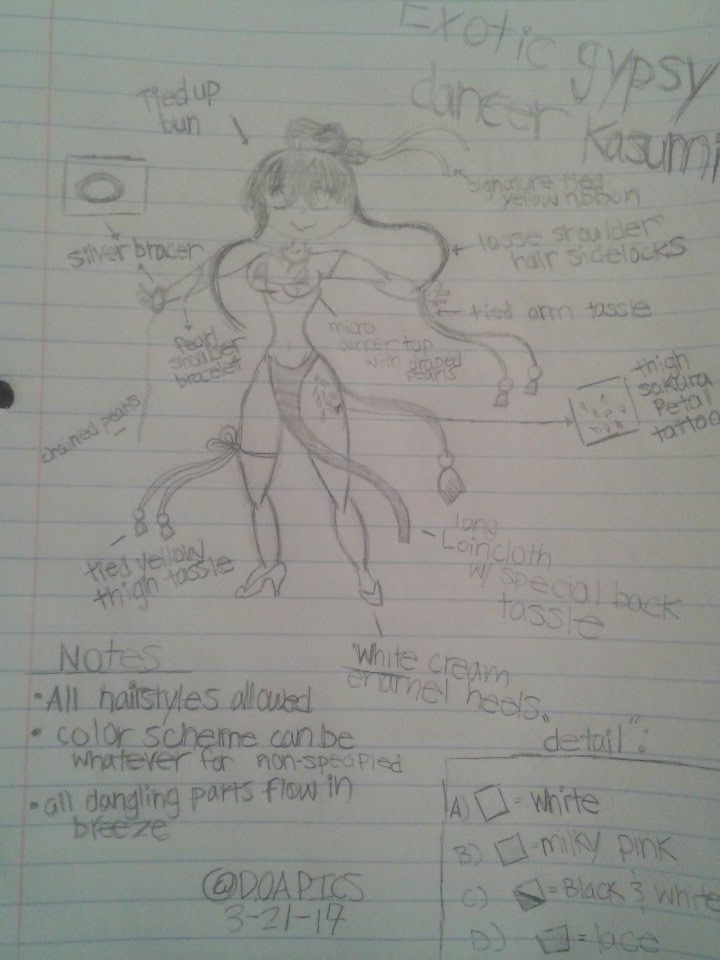 Exotic gypsy
dancer Kasumi
Tied up
bun
signature tied
yellow ribbon
silver bracer
loose shoulder
hair sidelocks
tied arm tassle
pearl
shoulder
bracelet
micro
dancer top
with draped
pearls
thigh
sakura
Petal
tattoo
chained pearls
tied yellow
thigh tassle
long
Loincloth
w/ special back
tassle
White cream
enamel heels.
Notes
• All hairstyles allowed
• color scheme can be
whatever for non-specified
• all dangling parts flow in
breeze
detail":
A) = white
B) = milky pink
C) = Black & white
D) = lace
@DOAPICS
3-21-17